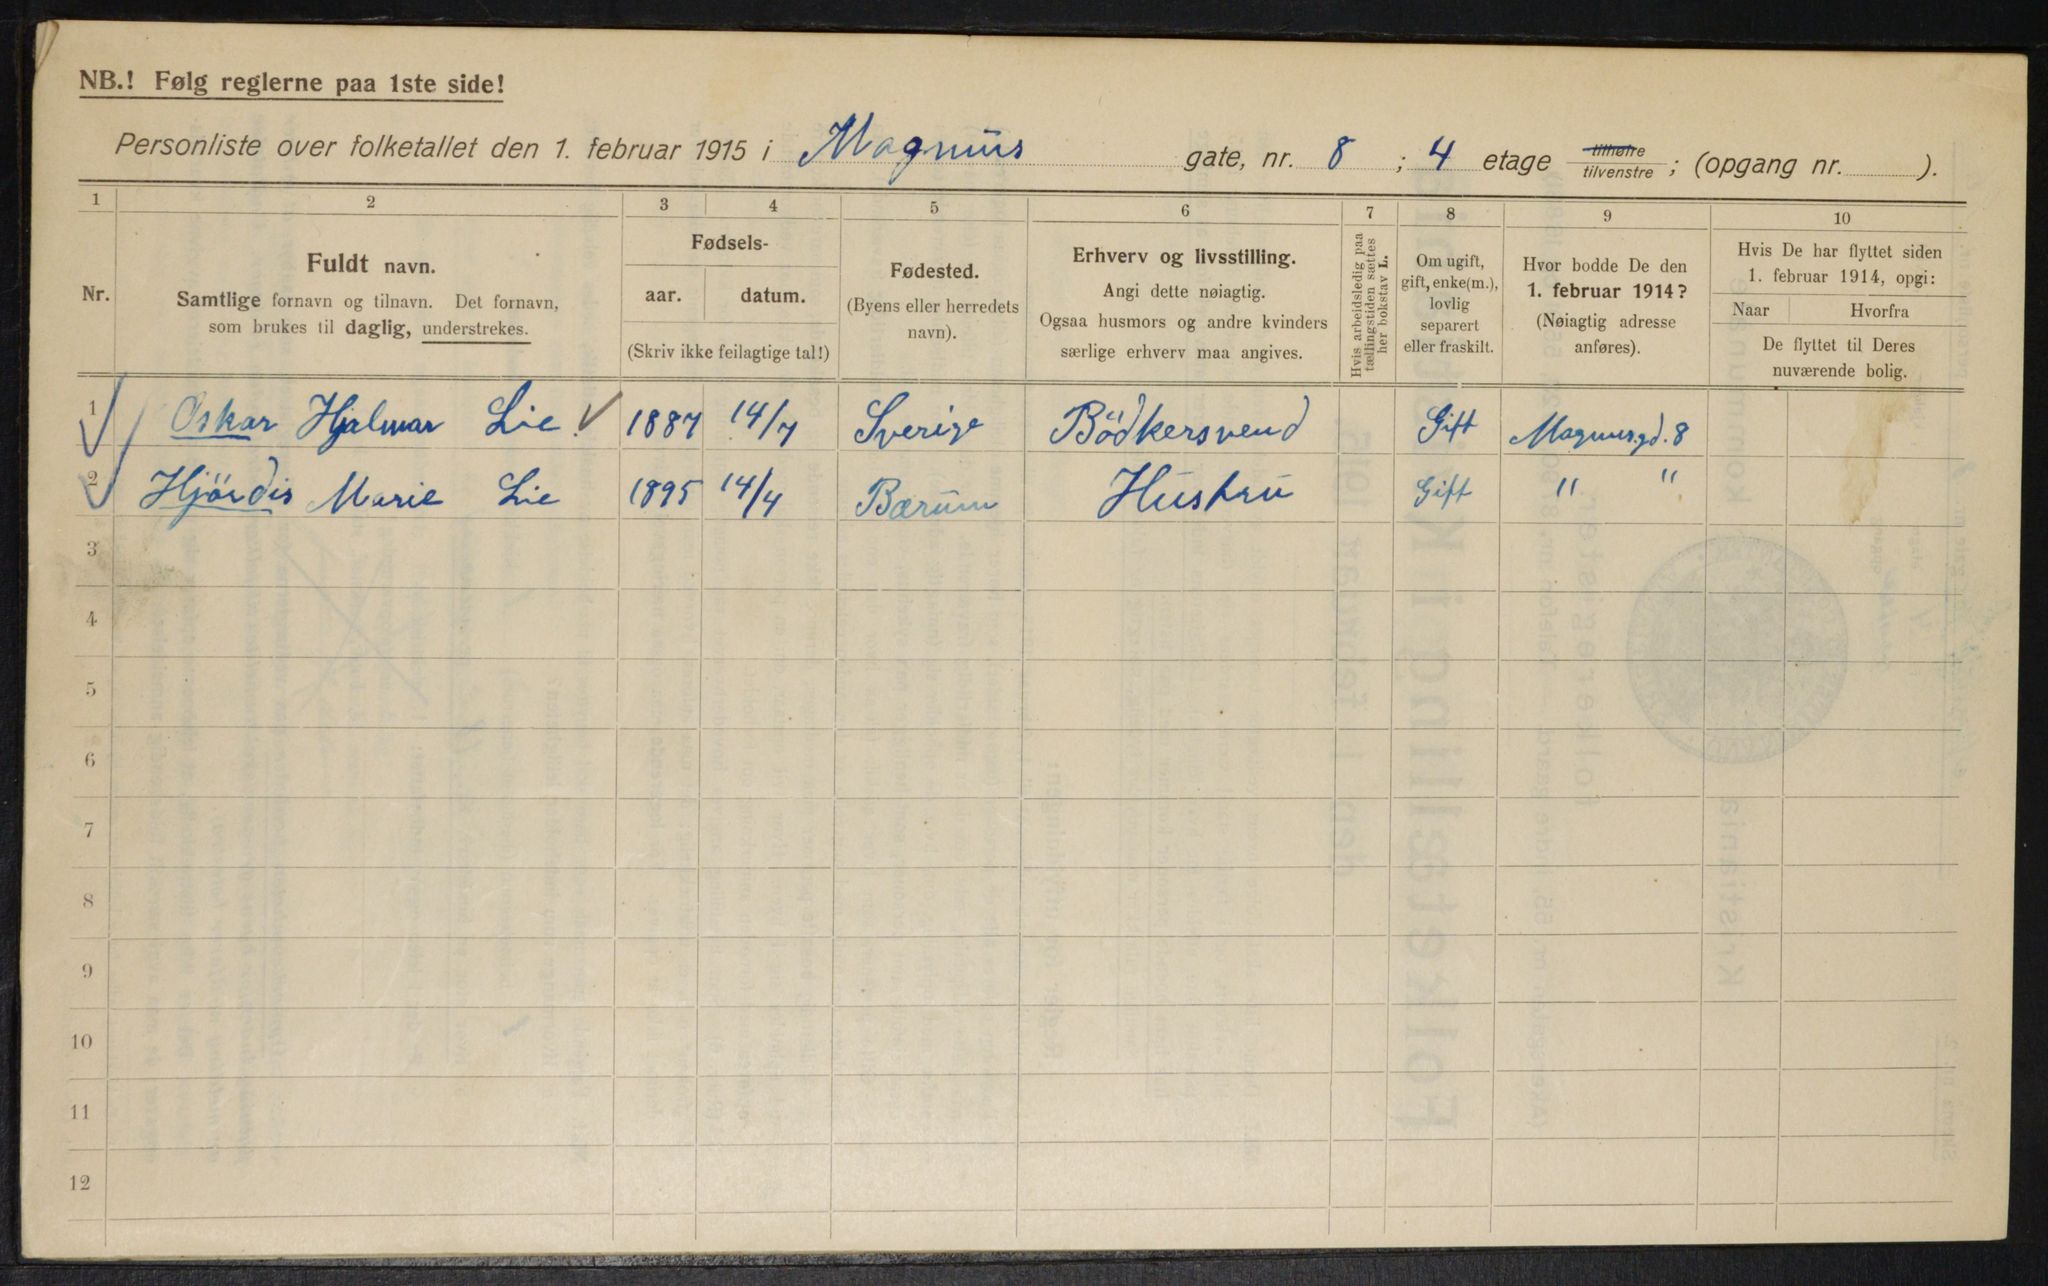 NB.! Følg reglerne paa 1ste side!
Personliste over folketallet den 1. februar 1915 i Magnus gate, nr. 8 ; 4 etage tilhøire tilvenstre ; (opgang nr. ).
1 2 3 4 5 6 7 8 9 10
Nr.
Fuldt navn.
Samtlige fornavn og tilnavn. Det fornavn,
som brukes til daglig, understrekes.
Fødsels-
aar. datum.
(Skriv ikke feilagtige tal!)
Fødested.
(Byens eller herredets
navn).
Erhverv og livsstilling.
Angi dette nøiagtig.
Ogsaa husmors og andre kvinders
særlige erhverv maa angives.
Hvis arbeidsledig paa
tællingstiden sættes
her bokstav L.
Om ugift,
gift, enke(m.),
lovlig
separert
eller fraskilt.
Hvor bodde De den
1. februar 1914?
(Nøiagtig adresse
anføres).
Hvis De har flyttet siden
1. februar 1914, opgi:
Naar Hvorfra
De flyttet til Deres
nuværende bolig.
1 Oskar Hjalmar Lie 1887 14/7 Sverige Bödkersvend Gift Magnus.gd. 8
2 Hjördis Marie Lie 1895 14/4 Bærum Hustru Gift " "
3
4
5
6
7
8
9
10
11
12